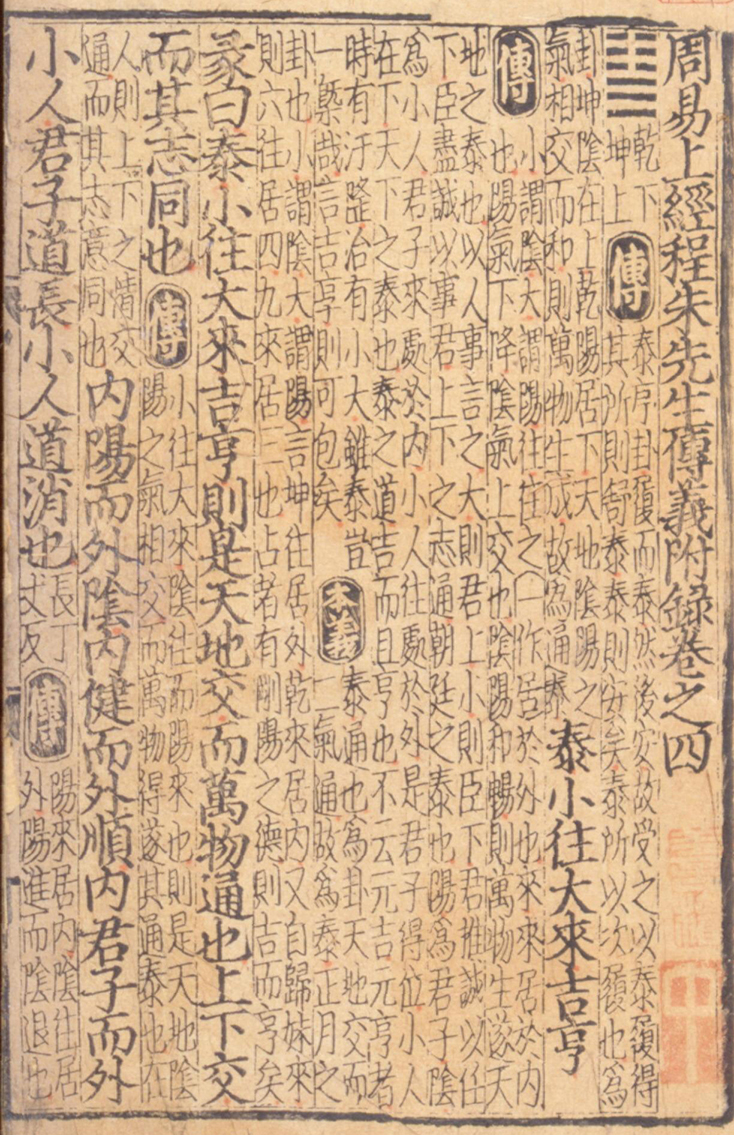 周易上經程朱先生傳義附錄卷之四
䷊
乾下
坤上
傳
泰序卦履而泰然後安故受之以泰履得
其所則舒泰泰則安矣泰所以次履也為
卦坤陰在上乾陽居下天地陰陽之
氣相交而和則萬物生成故為通泰
泰小往大來吉亨
傳
小謂陰大謂陽往往之一作居於外也來來居於內
也陽氣下降陰氣上交也陰陽和暢則萬物生遂天
地之泰也以人事言之大則君上小則臣下君推誠以任
下臣盡誠以事君上下之志通朝廷之泰也陽為君子陰
為小人君子來處於內小人往處於外是君子得位小人
在下天下之泰也泰之道吉而且亨也不云元吉元亨者
時有汙隆治有小大雖泰豈
一槩哉言吉亨則可包矣
本義
泰通也為卦天地交而
二氣通故為泰正月之
卦也小謂陰大謂陽言坤往居外乾來居內又自歸妹來
則六往居四九來居三也占者有剛陽之德則吉而亨矣
彖曰泰小往大來吉亨則是天地交而萬物通也上下交
而其志同也
傳
小往大來陰往而陽來也則是天地陰
陽之氣相交而萬物得遂其通泰也在
人則上下之情交
通而其志意同也
內陽而外陰內健而外順內君子而外
小人君子道長小人道消也
長丁
丈反
傳
陽來居內陰往居
外陽進而陰退也